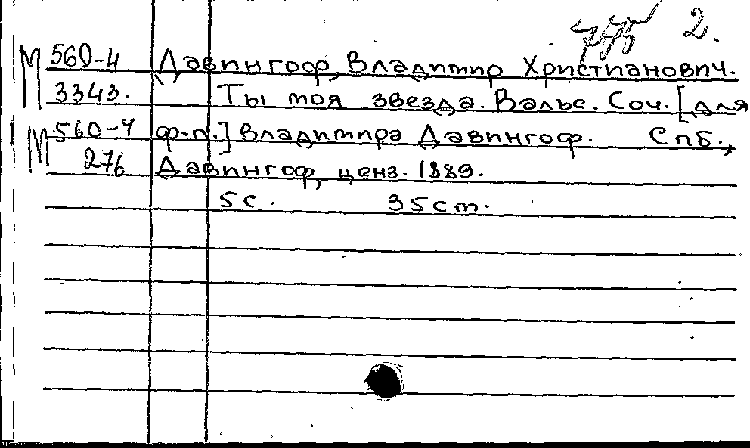 2.
М 560-4 Давингоф, Владимир Христианович.
3343. Ты моя звезда. Вальс. Соч. [для
М 560-4 ф-п.] Владимира Давингоф. Спб.,
276 Давингоф, ценз. 1889.
5 с. 35 см.